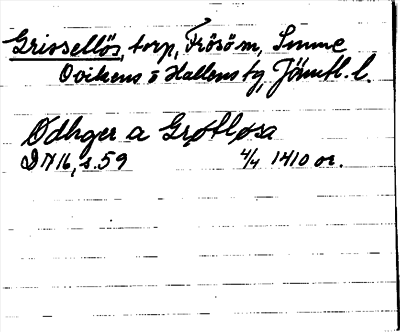 Griosellös, torp, Frösö sn, Sunne
Ovikens o Hallens tg, Jämtl. l.
Odhger a Grøtløsa
DN 16, s. 59 4/4 1410 or.